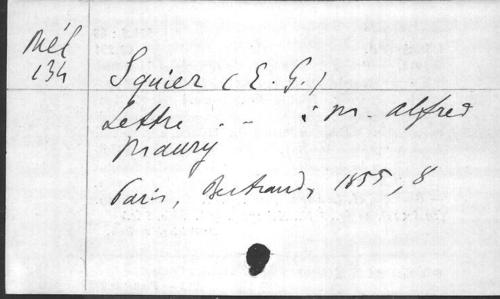 Mél
134
Squier (E. G.)
Lettre .. à M. Alfred
Maury
Paris, Bertrand, 1855, 8